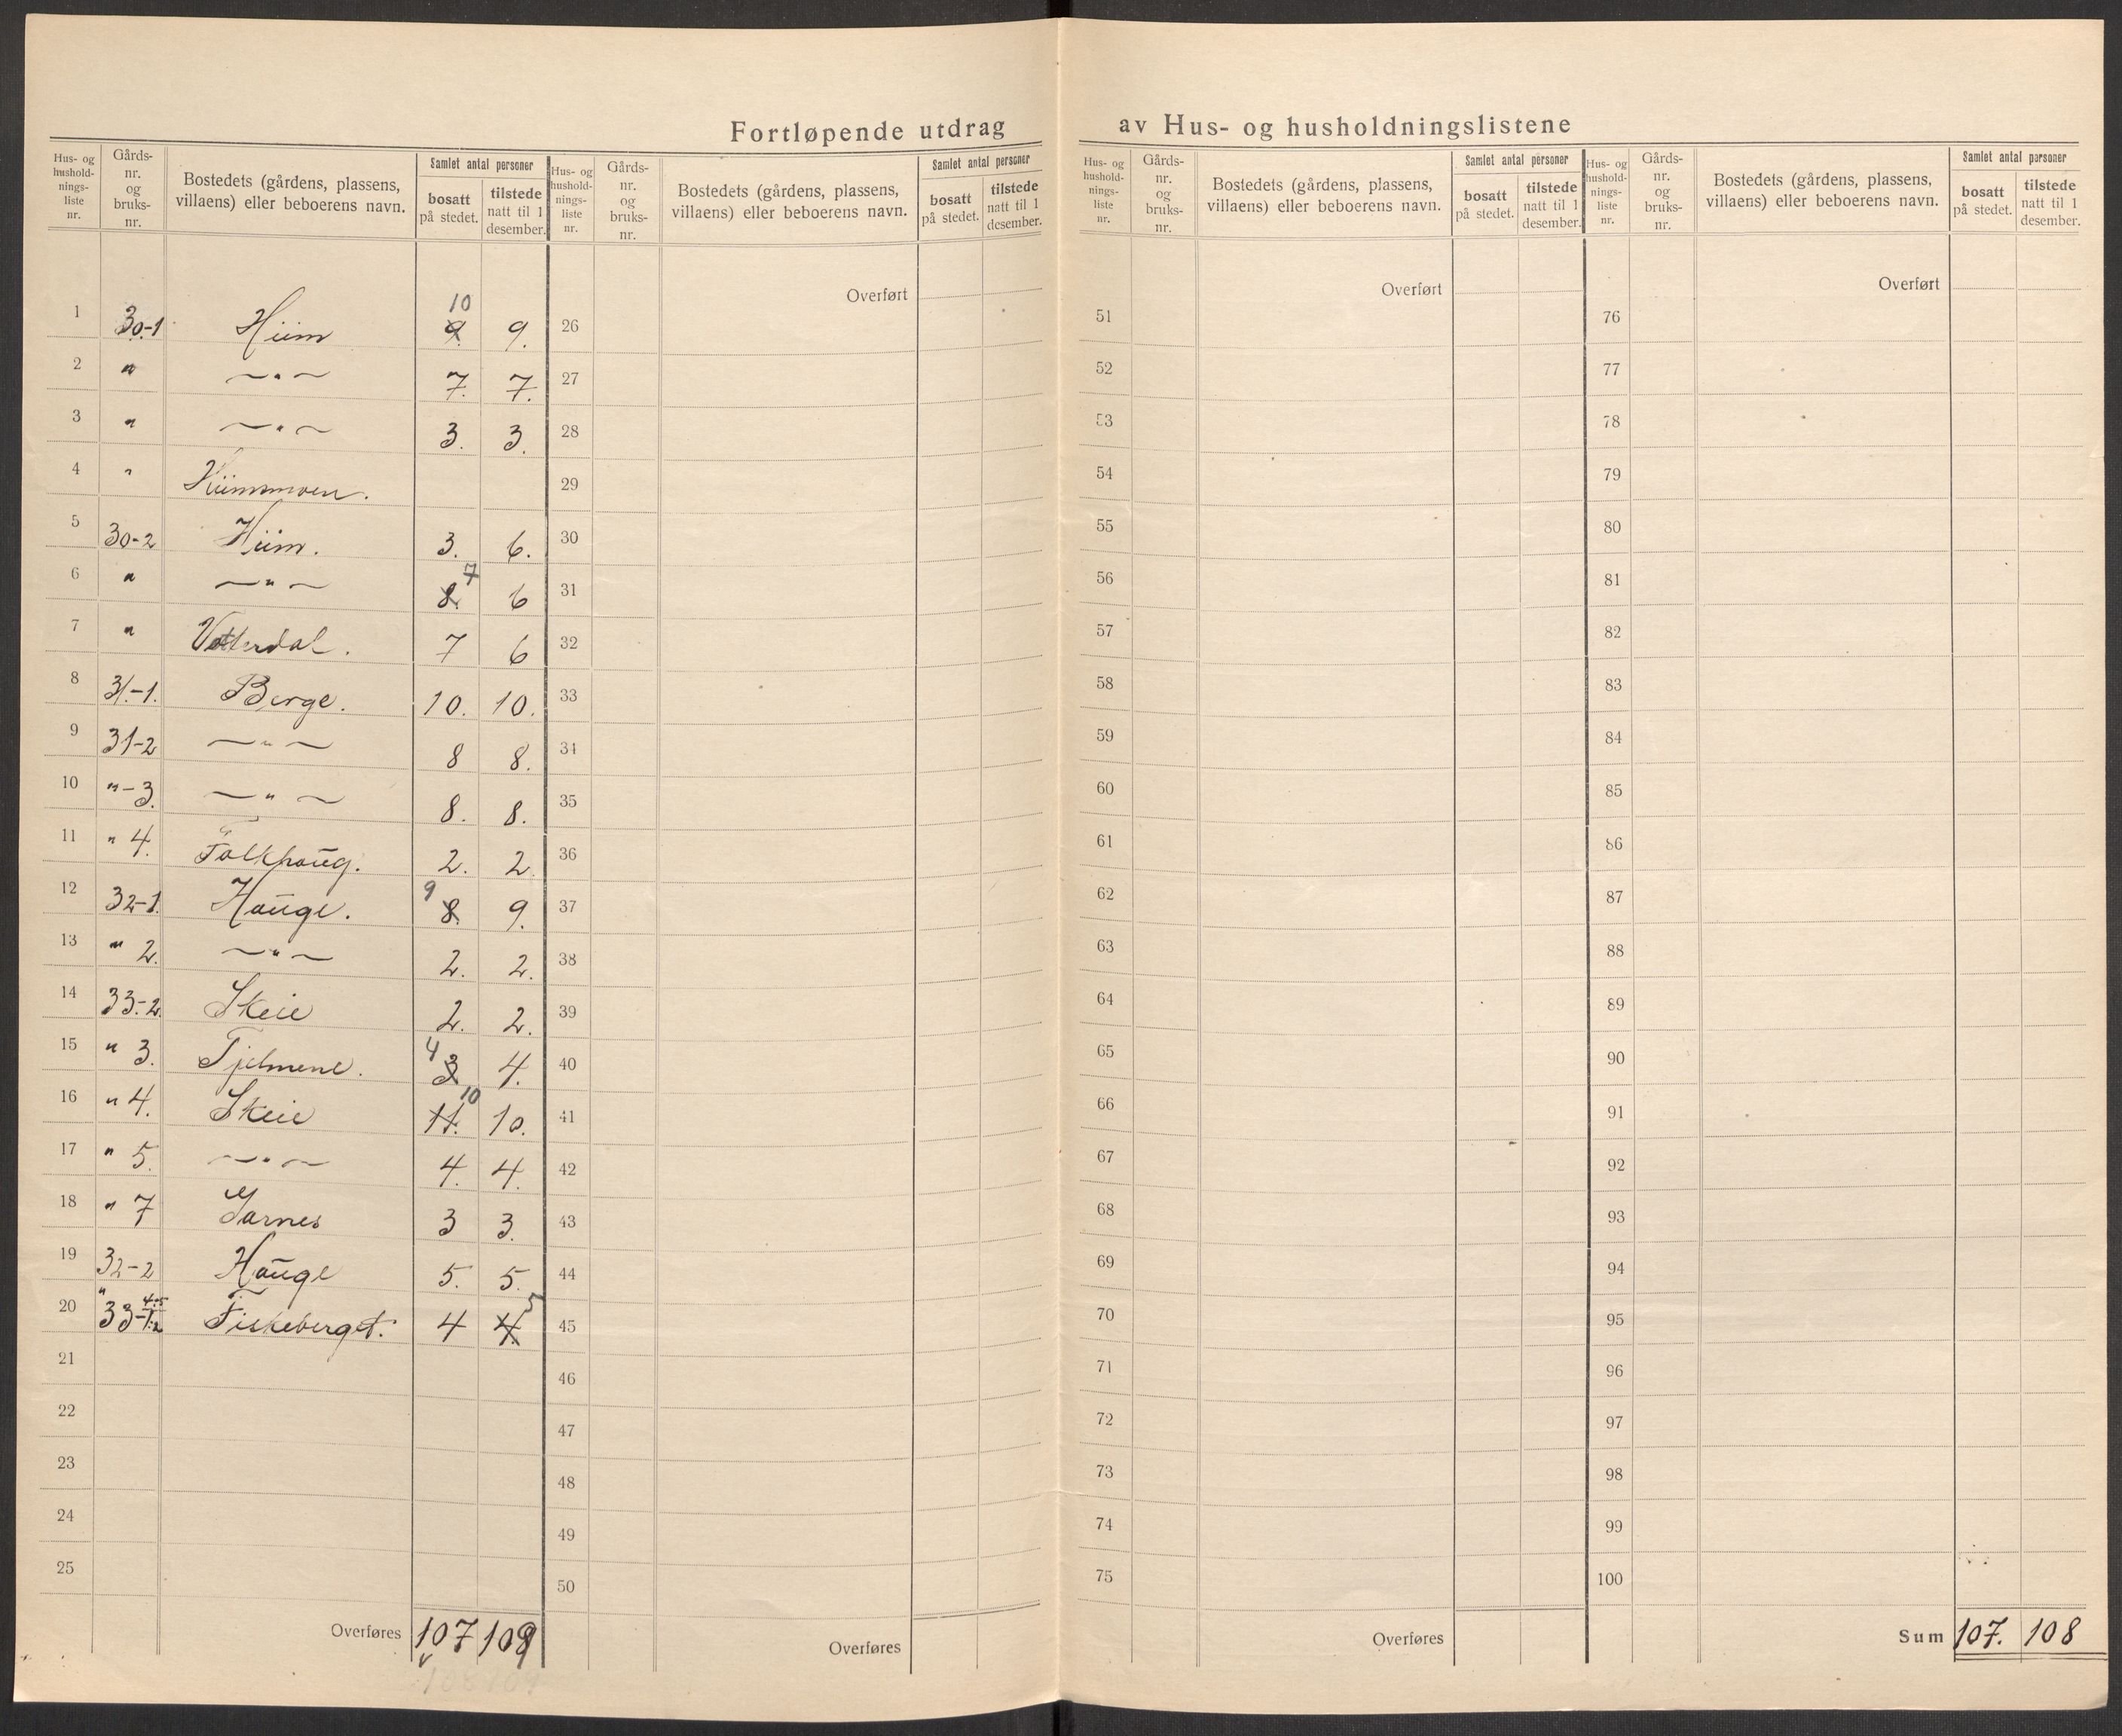 Fortløpende utdrag av Hus- og husholdningslistene
Hus- og hushold-nings-liste nr. | Gårds-nr. og bruks-nr. | Bostedets (gårdens, plassens, villaens) eller beboerens navn. | Samlet antal personer | bosatt på stedet. | tilstede natt til 1 desember.
Hus- og hushold-nings-liste nr. | Gårds-nr. og bruks-nr. | Bostedets (gårdens, plassens, villaens) eller beboerens navn. | Samlet antal personer | bosatt på stedet. | tilstede natt til 1 desember.
Hus- og hushold-nings-liste nr. | Gårds-nr. og bruks-nr. | Bostedets (gårdens, plassens, villaens) eller beboerens navn. | Samlet antal personer | bosatt på stedet. | tilstede natt til 1 desember.
Hus- og hushold-nings-liste nr. | Gårds-nr. og bruks-nr. | Bostedets (gårdens, plassens, villaens) eller beboerens navn. | Samlet antal personer | bosatt på stedet. | tilstede natt til 1 desember.
1 30-1 Hiim 9. 10 9.
2 " —"— 7. 7.
3 " —"— 3. 3.
4 " Hiimmoen.
5 30-2 Hiim. 3. 6.
6 " —"— 8. 7 6
7 " Vetterdal. 7 6
8 31-1. Berge. 10. 10.
9 31-2 —"— 8 8.
10 "-3. —"— 8. 8.
11 " 4. Falkhaŭg. 2. 2.
12 32-1. Haŭge. 8. 9 9.
13 " 2. —"— 2. 2.
14 33-2. Skeie 2. 2.
15 " 3. Tjelmene. 3 4 4.
16 " 4. Skeie 11. 10 10.
17 " 5. —"— 4. 4.
18 " 7 Garnes 3 3.
19 32-2 Haŭge 5. 5.
20 " 33- Fiskeberget. 4 4. 5
21
22
23
24
25
Overføres 107 109
Overført
26
27
28
29
30
31
32
33
34
35
36
37
38
39
40
41
42
43
44
45
46
47
48
49
50
Overføres
Overført
51
52
53
54
55
56
57
58
59
60
61
62
63
64
65
66
67
68
69
70
71
72
73
74
75
Overføres
Overført
76
77
78
79
80
81
82
83
84
85
86
87
88
89
90
91
92
93
94
95
96
97
98
99
100
Sum 107. 108